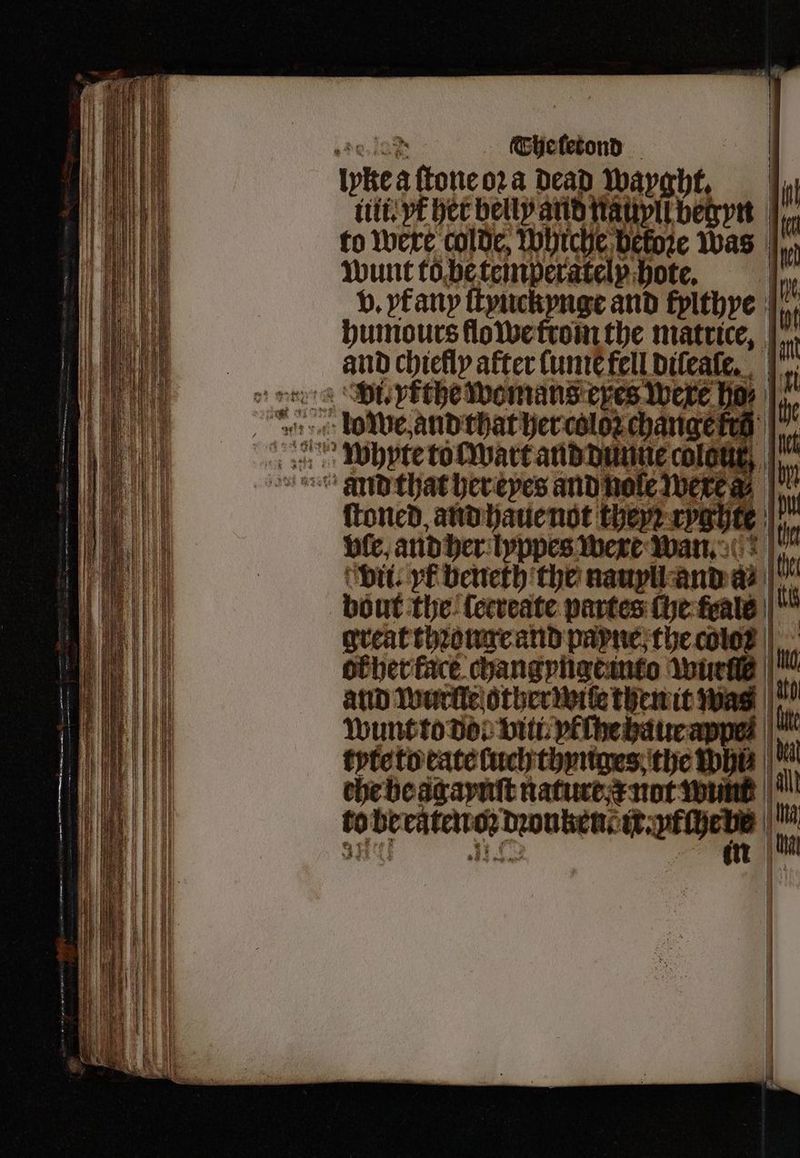 The second
lyke a stone or a dead wayght.
iiii. yf her belly and nauyll begyn
to were colde, whiche before was
wunt to be temperately hote.
v. yf any stynckynge and fylthye
humours flowe from the matrice,
and chiefly after sume fell disease.
vi. yf the womans eyes were ho-
lowe, and that her color change frō
whyte to swart and dunne colour,
and that her eyes and nose were a-
stoned, and haue not theyr ryghte
vse, and her lyppes were wan.
vii. yf beneth the nauyll and a-
bout the secreate partes she feale
great thronge and payne, the color
of her face changynge into wursse
and wursse otherwise then it was
wunt to do. viii. yf she haue appe-
tyte to eate such thynges, the whi-
che be agaynst nature, & not wunt
to be eaten or dronken. ix. yf she be
in